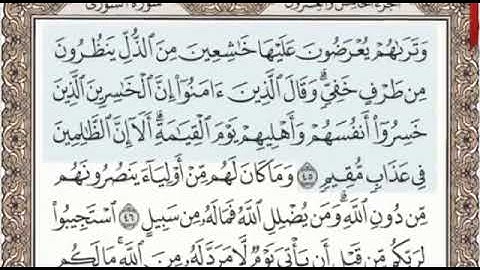 الجزء الخامس والعشرون سورة الشورى
وَتَرَىٰهُمْ يُعْرَضُونَ عَلَيْهَا خَٰشِعِينَ مِنَ ٱلذُّلِّ يَنظُرُونَ
مِن طَرْفٍ خَفِىٍّ ۗ وَقَالَ ٱلَّذِينَ ءَامَنُوٓا۟ إِنَّ ٱلْخَٰسِرِينَ ٱلَّذِينَ
خَسِرُوٓا۟ أَنفُسَهُمْ وَأَهْلِيهِمْ يَوْمَ ٱلْقِيَٰمَةِ ۗ أَلَآ إِنَّ ٱلظَّٰلِمِينَ
فِى عَذَابٍ مُّقِيمٍ ٤٥ وَمَا كَانَ لَهُم مِّنْ أَوْلِيَآءَ يَنصُرُونَهُم
مِّن دُونِ ٱللَّهِ ۗ وَمَن يُضْلِلِ ٱللَّهُ فَمَا لَهُۥ مِن سَبِيلٍ ٤٦ ٱسْتَجِيبُوا۟
لِرَبِّكُم مِّن قَبْلِ أَن يَأْتِىَ يَوْمٌ لَّا مَرَدَّ لَهُۥ مِنَ ٱللَّهِ ۚ مَا لَكُم